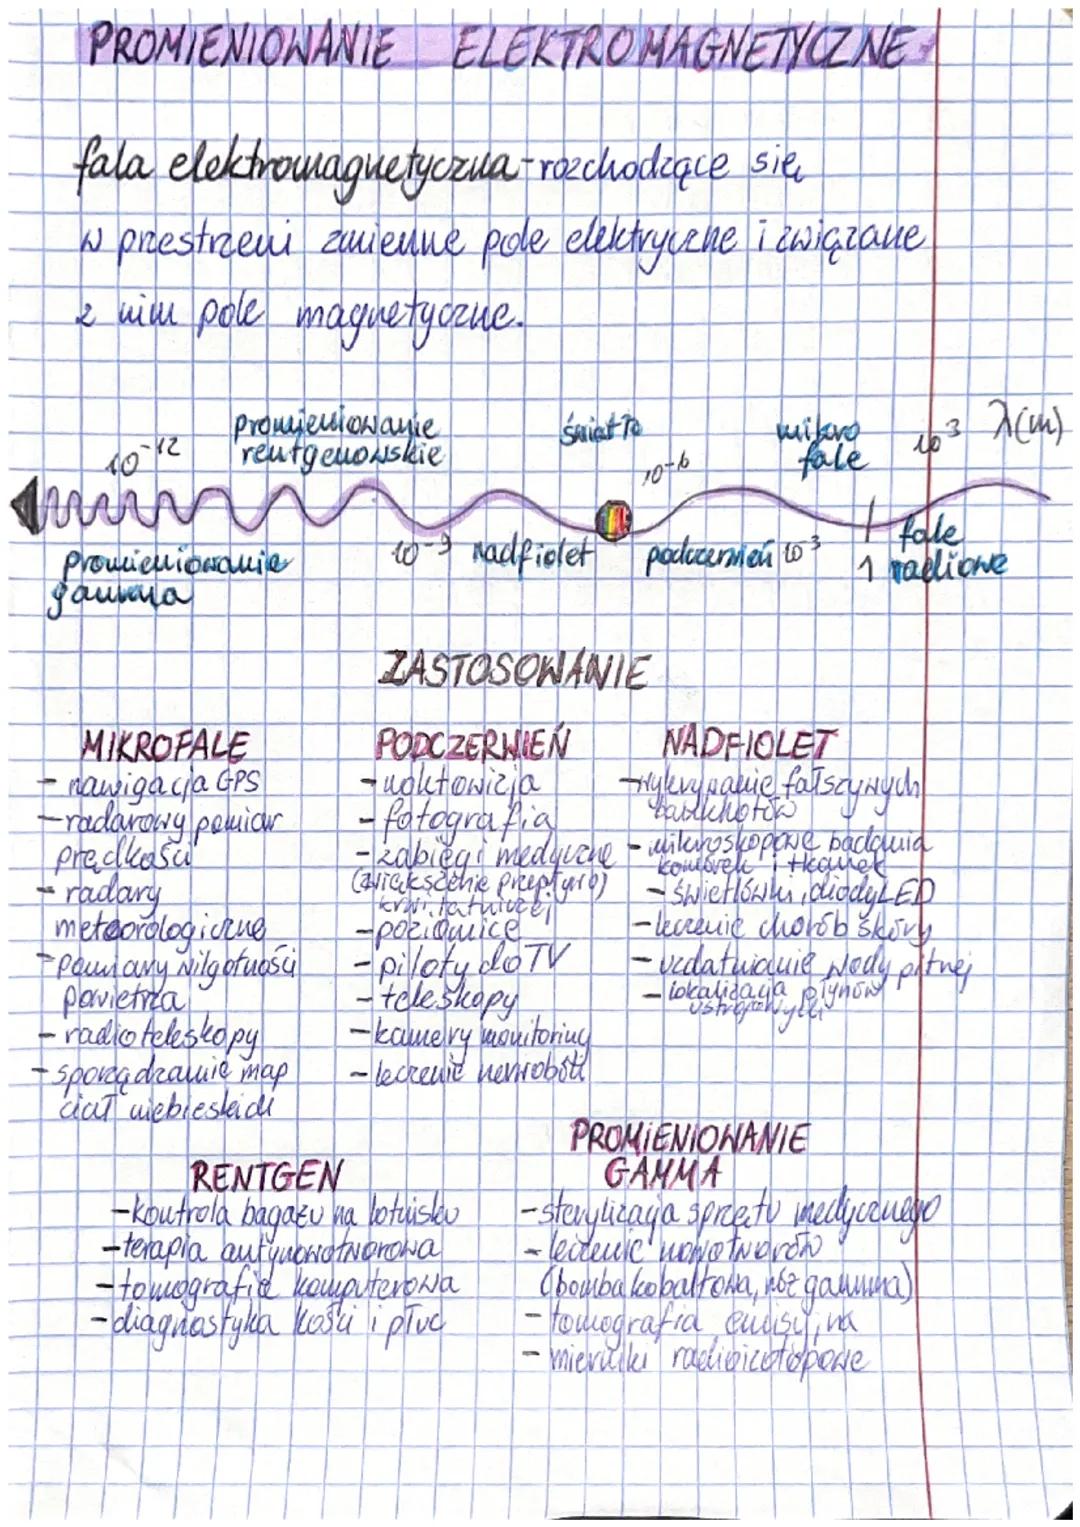 PROMIENIOWANIE ELEKTROMAGNETYCZNE
fala elektromagnetyczna - rozchodzące się
w przestrzeni zmienne pole elektryczne i związane
z nim pole magnetyczne.
promieniowanie
rentgenowskie
światło
mikro
fale
10³ λ(m)
10⁻¹²
10⁻⁶
promieniowanie
gamma
10⁻⁹ nadfiolet
podczerwień 10⁻³
1
fale
radiowe
ZASTOSOWANIE
MIKROFALE
- nawigacja GPS
- radarowy pomiar
prędkości
- radary
meteorologiczne
- pomiary wilgotności
powietrza
- radioteleskopy
- sporządzanie map
ciał niebieskich
PODCZERWIEŃ
- noktowizja
- fotografia
- zabiegi medyczne
(zwiększenie przepływu)
krwi tętniczej
- poziomice
- piloty do TV
- teleskopy
- kamery monitoring
- leczenie nerwobóli
NADFIOLET
- wykrywanie fałszywych
banknotów
- mikroskopowe badania
komórek i tkanek
- świetlówki, diody LED
- leczenie chorób skóry
- uzdatnianie wody pitnej
- lokalizacja płynów
ustrojowych
RENTGEN
- kontrola bagażu na lotnisku
- terapia antynowotworowa
- tomografia komputerowa
- diagnostyka kości i płuc
PROMIENIOWANIE
GAMMA
- sterylizacja sprzętu medycznego
- leczenie nowotworów
(bomba kobaltowa, nóż gamma)
- tomografia emisyjna
- mierniki radioizotopowe